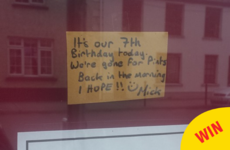 It's our 7th
Birthday today.
We're gone for Pints
Back in the morning
I HOPE!! Mick
WIN